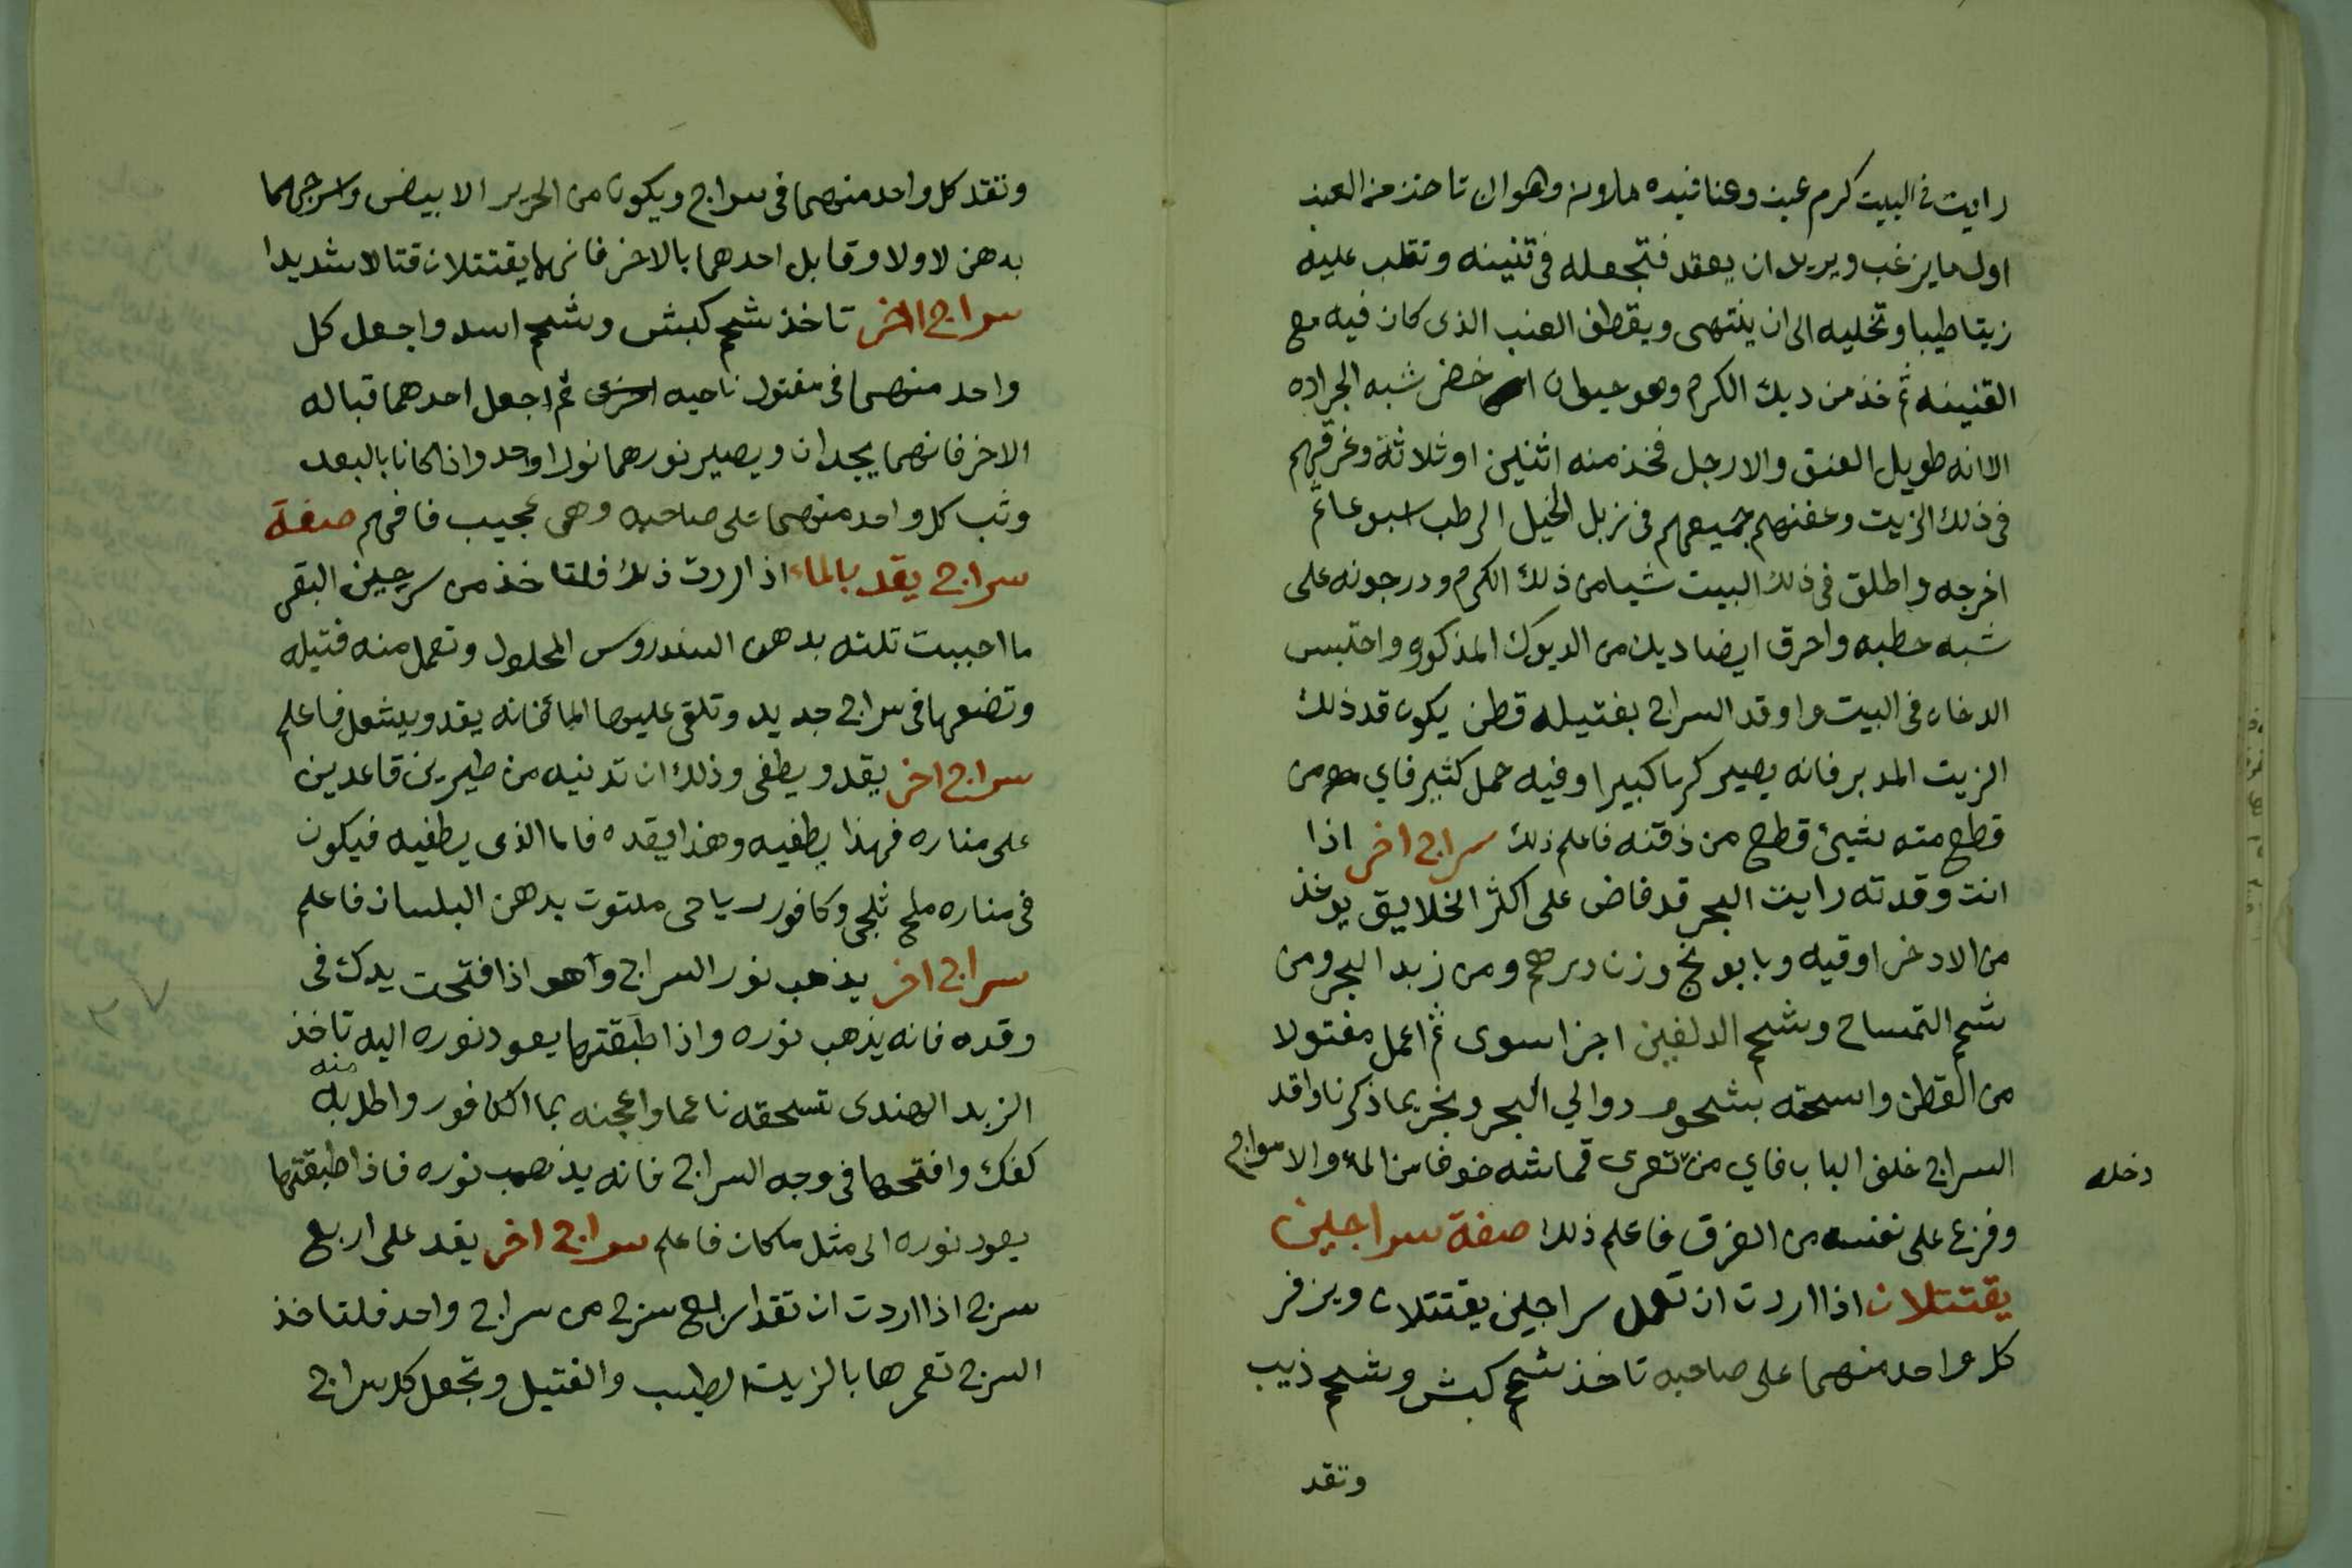 رايت فى البيت كرم عنب وعناقيده ملاونه وهو ان تاخذ من العنب
اول ما يزغب ويريد ان يعقد فتجعله فى قنينه وتقلب عليه
زيتا طيبا وتخليه الى ان ينتهى ويقطف العنب الذى كان فيه مع
القنينه ثم خذ من ديك الكرم وهو حيوان اخضر شبه الجراده
الا انه طويل العنق والارجل فخذ منه اثنين او ثلاثة وغرقهم
فى ذلك الزيت وعفنهم جميعهم فى زبل الخيل الرطب اسبوعا ثم
اخرجه واطلق فى ذلك البيت شيا من ذلك الكرم ودرجونه على
شبه حطبه واحرق ايضا ديك من الديوك المذكوره واحتبس
الدخان فى البيت واوقد السراج بفتيله قطن يكون قد ذلك
الزيت المدبر فانه يصير كرما كبيرا وفيه حمل كثير فاي من
قطع منه شيئ قطع من ذقنه فاعلم ذلك سراج اخر اذا
انت وقدته رايت البحر قد فاض على اكثر الخلايق يوخذ
من الادخر اوقيه وبابونج وزن درهم ومن زبد البحر ومن
شحم التمساح وشحم الدلفين اجزا سوى ثم اعمل مفتولا
من القطن واسحقه بشحوم دوالي البحر وبخر بما ذكرنا واقد
السراج خلف الباب فاي من تعرى قماشه خوفا من الماء والامواج
دخله
وفزع على نفسه من الغرق فاعلم ذلك صفة سراجين
يقتتلان اذا اردت ان تعمل سراجين يقتتلان ويزفر
كل واحد منهما على صاحبه تاخذ شحم كبش وشحم ذيب
وتقد
وتقد كل واحد منهما فى سراج ويكون من الحرير الابيض واسرجهما
بدهن لاولا وقابل احدهما بالاخر فانهما يقتتلان قتالا شديدا
سراج اخر تاخذ شحم كبش وشحم اسد واجعل كل
واحد منهما فى مفتول ناحيه اخرى ثم اجعل احدهما قباله
الاخر فانهما يجدان ويصير نورهما نورا واحد واذا كانا بالبعد
وثب كل واحد منهما على صاحبه وهى عجيب فافهم صفة
سراج يقد بالماء اذا اردت ذلك فلتاخذ من سرجين البقر
ما احببت تلته بدهن السندروس المحلول وتعمل منه فتيله
وتضعها فى سراج جديد وتلقى عليها الماء فانه يقد ويشعل فاعلم
سراج اخر يقد ويطفى وذلك ان تدنيه من طيرين قاعدين
على مناره فهذا يطفيه وهذا يقده فاما الذى يطفيه فيكون
فى مناره ملح ثلجى وكافور رياحى ملتوت بدهن البلسان فاعلم
سراج اخر يذهب نور السراج وهو اذا فتحت يدك فى
وقده فانه يذهب نوره واذا طبقتها يعود نوره اليه تاخذ
الزبد الهندى تسحقه ناعما واعجنه بما الكافور واطلى به منه
كفك وافتحها فى وجه السراج فانه يذهب نوره فاذا طبقتها
يعود نوره الى مثل ما كان فاعلم سراج اخر يقد على اربع
سرج اذا اردت ان تقد اربع سرج من سراج واحد فلتاخذ
السرج تعمرها بالزيت الطيب والفتيل وتجعل كل سراج